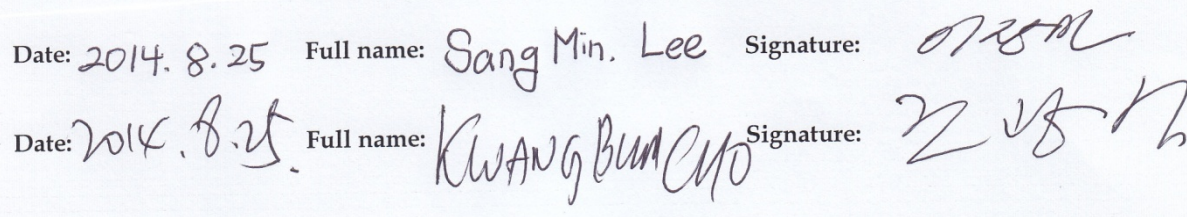 Date: 2014. 8. 25 Full name: Sang Min. Lee Signature: 이상민
Date: 2014. 8. 25. Full name: KWANG BUM CHO Signature: